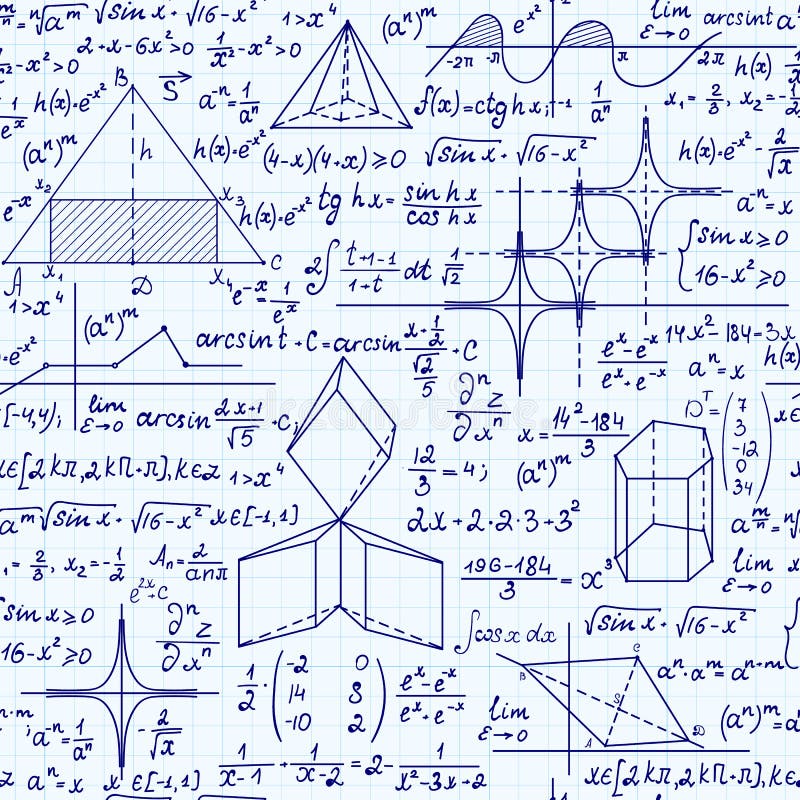 ⁿ√aᵐ √sin x · √16-x² 1>x⁴ (aⁿ)ᵐ e^(x²) lim ε→0 arcsin t
2+x-6x²>0 1/(x²-x²)>0 -2π -π π 2π h(x)
B S⃗ a⁻ⁿ=1/aⁿ f(x)=ctg hx; -1 1/aⁿ x₁=2/3, x₂=-1/2
h(x)=e^(-x²)
(aⁿ)ᵐ h h(x)=e^(-x²) (4-x)(4+x)≥0 √sin x · √16-x² h(x)=e^(-x²) -2/√x
e^(-x) x₂ x₃ h(x)=e^(-x²) tg hx = sin hx/cos hx a⁻ⁿ=x
2∫(t+1-1)/(1+t) dt 1/√2 {sin x≥0
16-x²≥0
A x₁ D x₄ C
1>x⁴ e^(-x)=1/e^x
(aⁿ)ᵐ arcsin t+C=arcsin (x+1/2)/(√2/5)+C (e^x-e^(-x))/(e^x+e^(-x)) 14x²-184=3x
aⁿ=x h(x)
[-4,4); lim ε→0 arcsin (2x+1)/√5+C; ∂ⁿz/∂xⁿ x=(14²-184)/3 Dᵀ=(7 3 -12 0 34)
x∈[2kπ,2kπ+π),k∈Z 1>x⁴ 12/3=4; (aⁿ)ᵐ
aᵐ √sin x · √16-x² x∈[-1,1] 2x+2·2·3+3² a^(m/n)=ⁿ√
=2/3, x₂=-1/2 Aₙ=2/(anπ) (196-184)/3=x³ lim ε→0
e^(2x)+C
sin x≥0 ∂ⁿz/∂xⁿ ∫cos x dx √sin x · √16-x²
16-x²≥0 C
B aⁿ·aᵐ=aⁿ⁺ᵐ
1/2·(-2 0 14 8 -10 2) (e^x-e^(-x))/(e^x+e^(-x)) lim ε→0 S
a⁻ⁿ=1/aⁿ -2/√x A D (aⁿ)ᵐ=
a⁻ⁿ=x x∈[-1,1) 1/(x-1)+1/(x-2)=2-1/(x²-3x+2) x∈[2kπ,2kπ+π),k∈